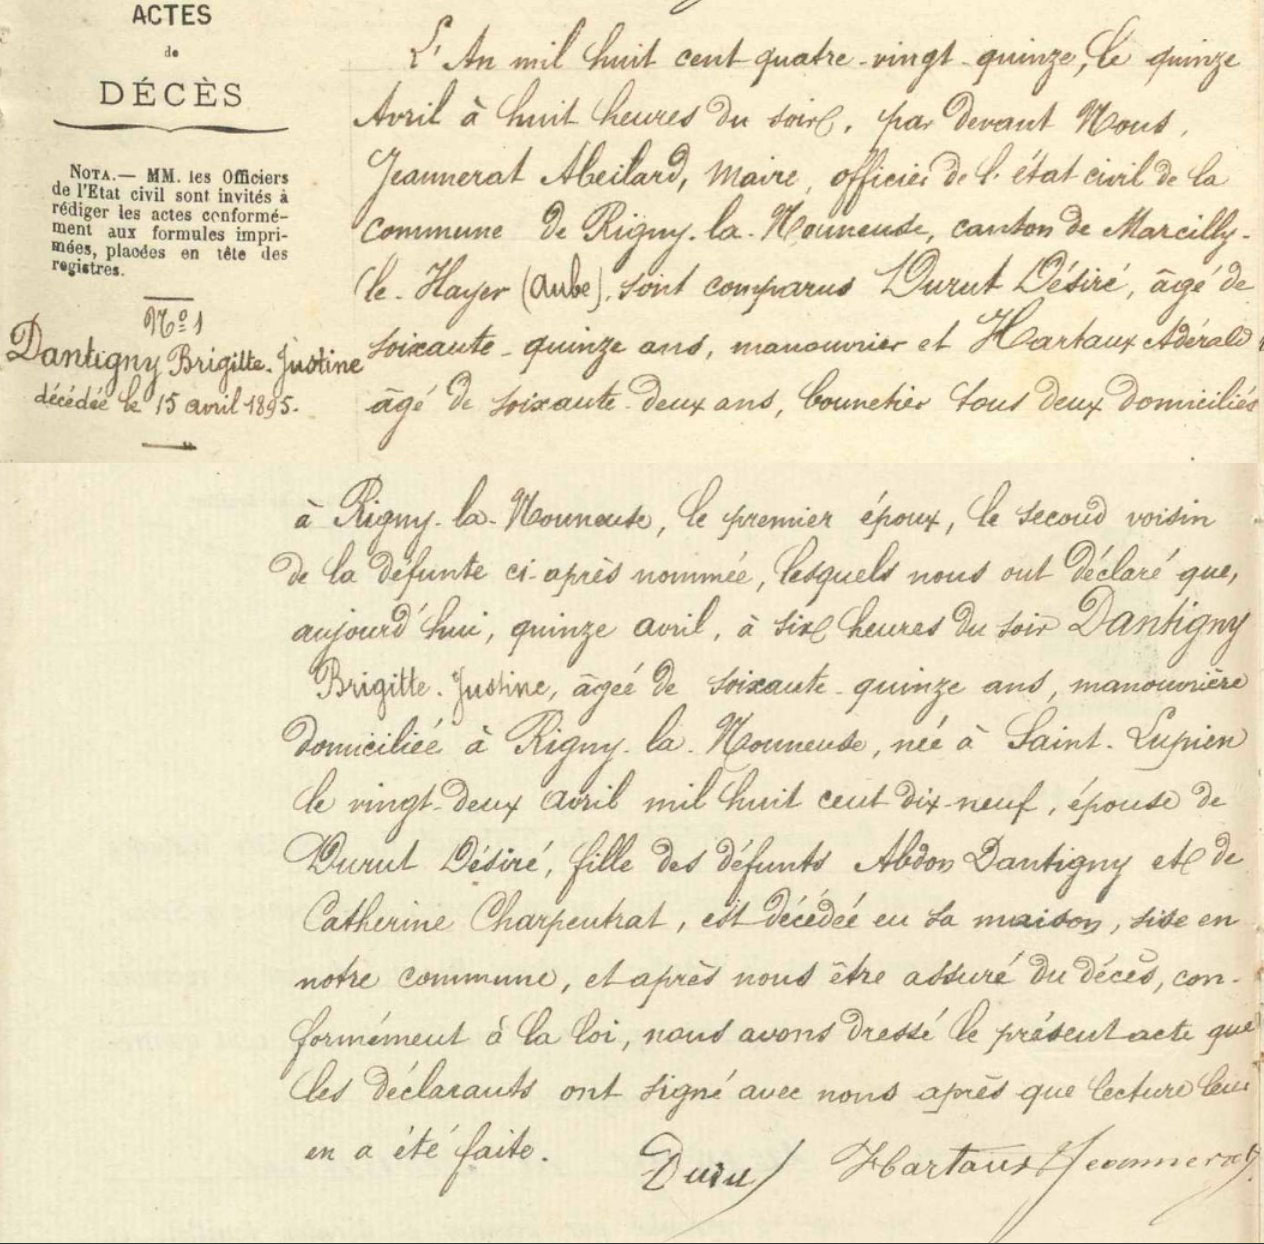 ACTES
de
DÉCÈS
NOTA.— MM. les Officiers
de l'Etat civil sont invités à
rédiger les actes conformé-
ment aux formules impri-
mées, placées en tête des
registres.
Nº 1
Dantigny Brigitte-Justine
décédée le 15 avril 1895.
L'An mil huit cent quatre-vingt-quinze, le quinze
Avril à huit heures du soir, par devant Nous,
Jeannerat Abeilard, Maire, officier de l'état civil de la
commune de Rigny-la-Nonneuse, canton de Marcilly-
le-Hayer (Aube), sont comparus Durut Désiré, âgé de
soixante-quinze ans, manouvrier et Hartaux Adérald
âgé de soixante-deux ans, bonnetier tous deux domiciliés
à Rigny-la-Nonneuse, le premier époux, le second voisin
de la défunte ci-après nommée, lesquels nous ont déclaré que,
aujourd'hui, quinze avril, à six heures du soir Dantigny
Brigitte-Justine, âgée de soixante-quinze ans, manouvrière
domiciliée à Rigny-la-Nonneuse, née à Saint-Lupien
le vingt-deux avril mil huit cent dix-neuf, épouse de
Durut Désiré, fille des défunts Abdon Dantigny et de
Catherine Charpentrat, est décédée en sa maison, sise en
notre commune, et après nous être assuré du décès, con-
formément à la loi, nous avons dressé le présent acte que
les déclarants ont signé avec nous après que lecture leur
en a été faite.
Duru Hartaux Jeannerat